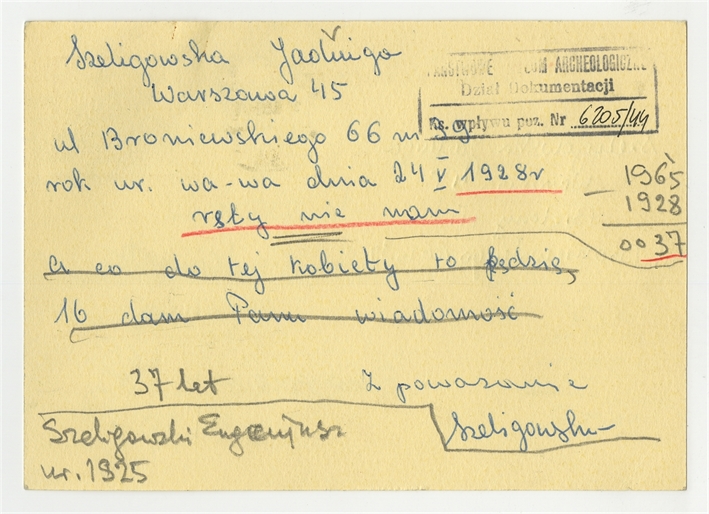 Szeligowska Jadwiga
Warszawa 45
PAŃSTWOWE MUZEUM ARCHEOLOGICZNE
Dział Dokumentacji
Ks. wpływu poz. Nr 6205/44
ul Broniewskiego 66 m
rok ur. Wa-wa dnia 24 V 1928r
rsty nie mam
1965
1928
0037
a co do tej kobiety to będzie,
16 dam Panu wiadomość
37 let
Z powazanie
Szeligowska
Szeligowski Eugeniusz
ur. 1925